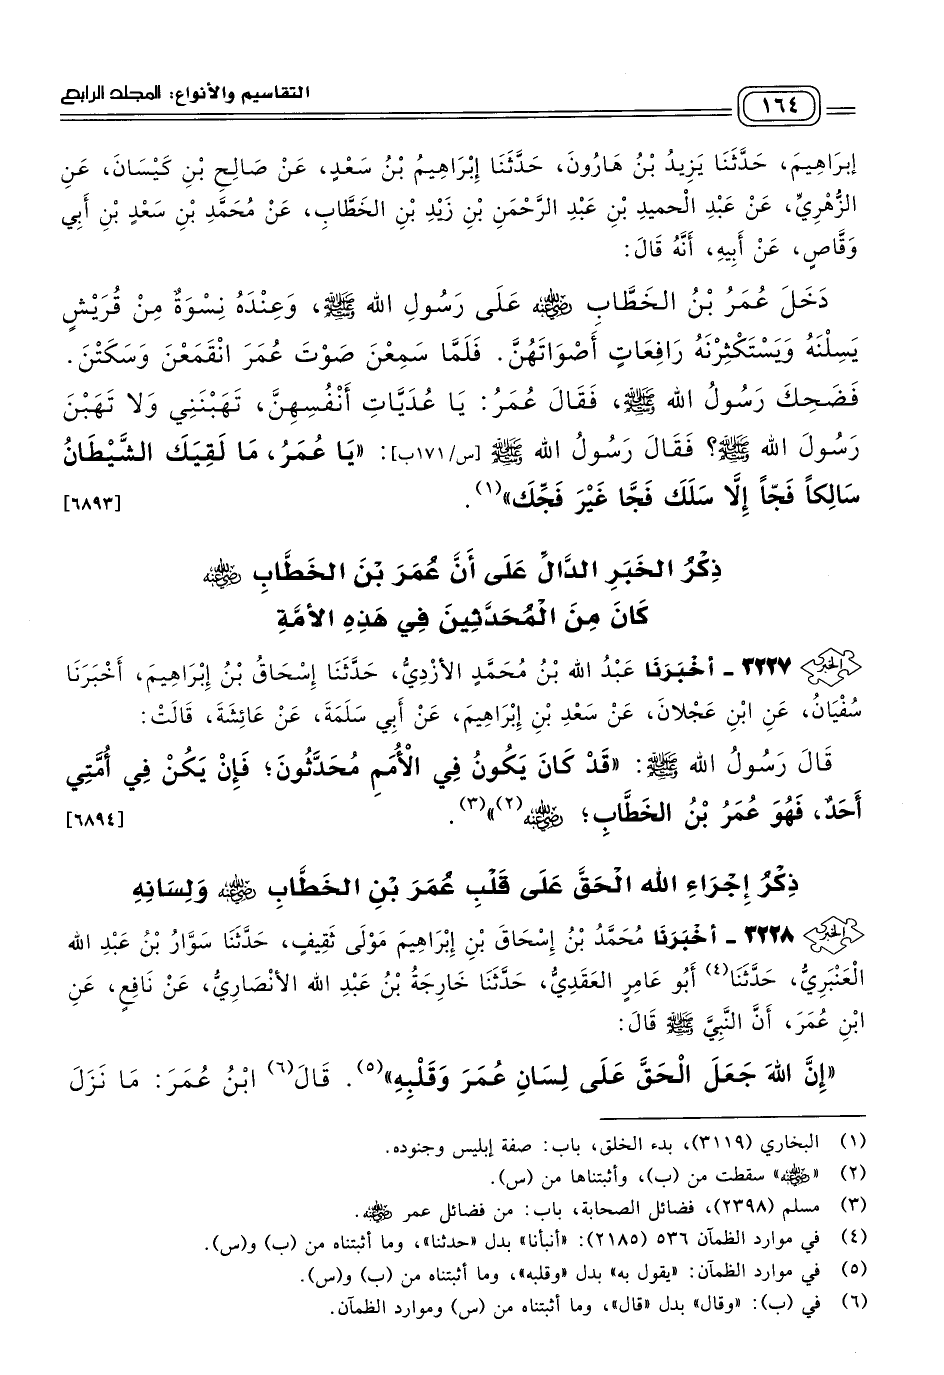 التقاسيم والأنواع: المجلد الرابع
١٦٤
إِبرَاهِيمَ، حَدَّثَنَا يَزِيدُ بْنُ هَارُونَ، حَدَّثَنَا إِبْرَاهِيمُ بْنُ سَعْدٍ، عَنْ صَالِحِ بْنِ كَيْسَانَ، عَنِ
الزُّهْرِيِّ، عَنْ عَبْدِ الْحميدِ بْنِ عَبْدِ الرَّحْمَنِ بْنِ زَيْدِ بْنِ الخَطَّابِ، عَنْ مُحَمَّدِ بْنِ سَعْدِ بْنِ أَبِي
وَقَّاصٍ، عَنْ أَبِيهِ، أَنَّهُ قَالَ:
دَخَلَ عُمَرُ بْنُ الخَطَّابِ ﵁ عَلَى رَسُولِ الله ﷺ، وَعِنْدَهُ نِسْوَةٌ مِنْ قُرَيْشٍ
يَسِلْنَهُ وَيَسْتَكْثِرْنَهُ رَافِعَاتٍ أَصْوَاتَهُنَّ. فَلَمَّا سَمِعْنَ صَوْتَ عُمَرَ انْقَمَعْنَ وَسَكَتْنَ.
فَضَحِكَ رَسُولُ الله ﷺ، فَقَالَ عُمَرُ: يَا عُدَيَّاتِ أَنْفُسِهِنَّ، تَهَبْنَنِي وَلا تَهَبْنَ
رَسُولَ الله ﷺ؟ فَقَالَ رَسُولُ الله ﷺ [س/١٧١ب]: «يَا عُمَرُ، مَا لَقِيَكَ الشَّيْطَانُ
سَالِكاً فَجّاً إِلَّا سَلَكَ فَجًّا غَيْرَ فَجِّكَ»(١). [٦٨٩٣]
ذِكْرُ الخَبَرِ الدَّالِّ عَلَى أَنَّ عُمَرَ بْنَ الخَطَّابِ ﵁
كَانَ مِنَ الْمُحَدَّثِينَ فِي هَذِهِ الأمَّةِ
الخبر ٣٢٢٧ - أخْبَرَنَا عَبْدُ الله بْنُ مُحَمَّدٍ الأزْدِيُّ، حَدَّثَنَا إِسْحَاقُ بْنُ إِبْرَاهِيمَ، أَخْبَرَنَا
سُفْيَانُ، عَنِ ابْنِ عَجْلانَ، عَنْ سَعْدِ بْنِ إِبْرَاهِيمَ، عَنْ أَبِي سَلَمَةَ، عَنْ عَائِشَةَ، قَالَتْ:
قَالَ رَسُولُ الله ﷺ: «قَدْ كَانَ يَكُونُ فِي الْأُمَمِ مُحَدَّثُونَ؛ فَإِنْ يَكُنْ فِي أُمَّتِي
أَحَدٌ، فَهُوَ عُمَرُ بْنُ الخَطَّابِ؛ ﵁(٢)»(٣). [٦٨٩٤]
ذِكْرُ إِجْرَاءِ الله الْحَقَّ عَلَى قَلْبِ عُمَرَ بْنِ الخَطَّابِ ﵁ وَلِسَانِهِ
الخبر ٣٢٢٨ - أخْبَرَنَا مُحَمَّدُ بْنُ إِسْحَاقَ بْنِ إِبْرَاهِيمَ مَوْلَى ثَقِيفٍ، حَدَّثَنَا سَوَّارُ بْنُ عَبْدِ الله
الْعَنْبَرِيُّ، حَدَّثَنَا(٤) أَبُو عَامِرٍ العَقَدِيُّ، حَدَّثَنَا خَارِجَةُ بْنُ عَبْدِ الله الأنْصَارِيُّ، عَنْ نَافِعٍ، عَنِ
ابْنِ عُمَرَ، أَنَّ النَّبِيَّ ﷺ قَالَ:
«إِنَّ اللهَ جَعَلَ الْحَقَّ عَلَى لِسَانِ عُمَرَ وَقَلْبِهِ»(٥). قَالَ(٦) ابْنُ عُمَرَ: مَا نَزَلَ
(١) البخاري (٣١١٩)، بدء الخلق، باب: صفة إبليس وجنوده.
(٢) «﵁» سقطت من (ب)، وأثبتناها من (س).
(٣) مسلم (٢٣٩٨)، فضائل الصحابة، باب: من فضائل عمر ﵁.
(٤) في موارد الظمآن ٥٣٦ (٢١٨٥): «أنبأنا» بدل «حدثنا»، وما أثبتناه من (ب) و(س).
(٥) في موارد الظمآن: «يقول به» بدل «وقلبه»، وما أثبتناه من (ب) و(س).
(٦) في (ب): «وقال» بدل «قال»، وما أثبتناه من (س) وموارد الظمآن.